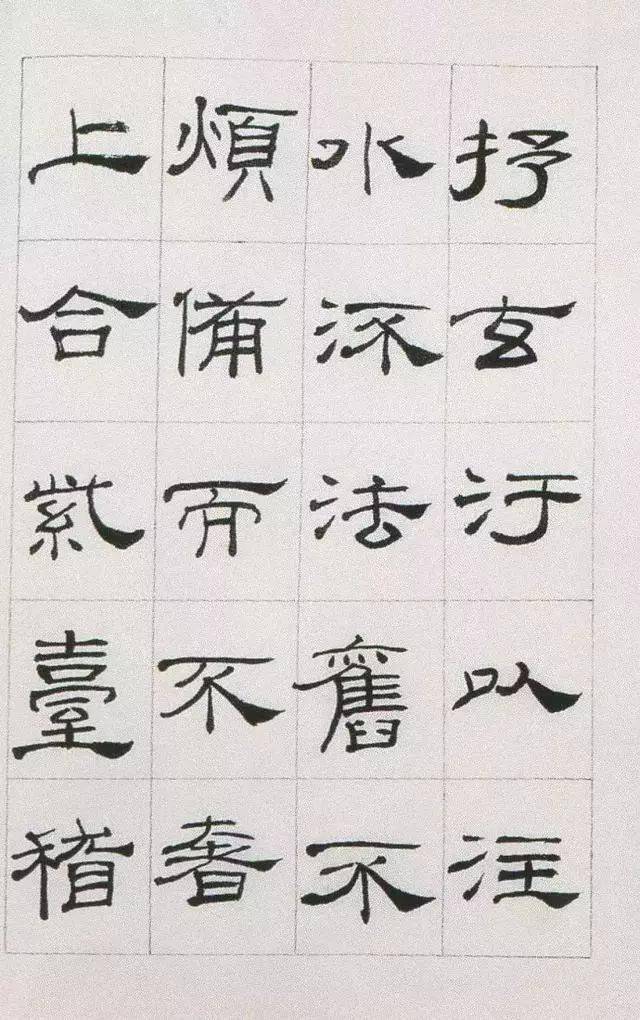 抒玄汙以注
水流法舊不
煩備而不奢
上合紫臺稽